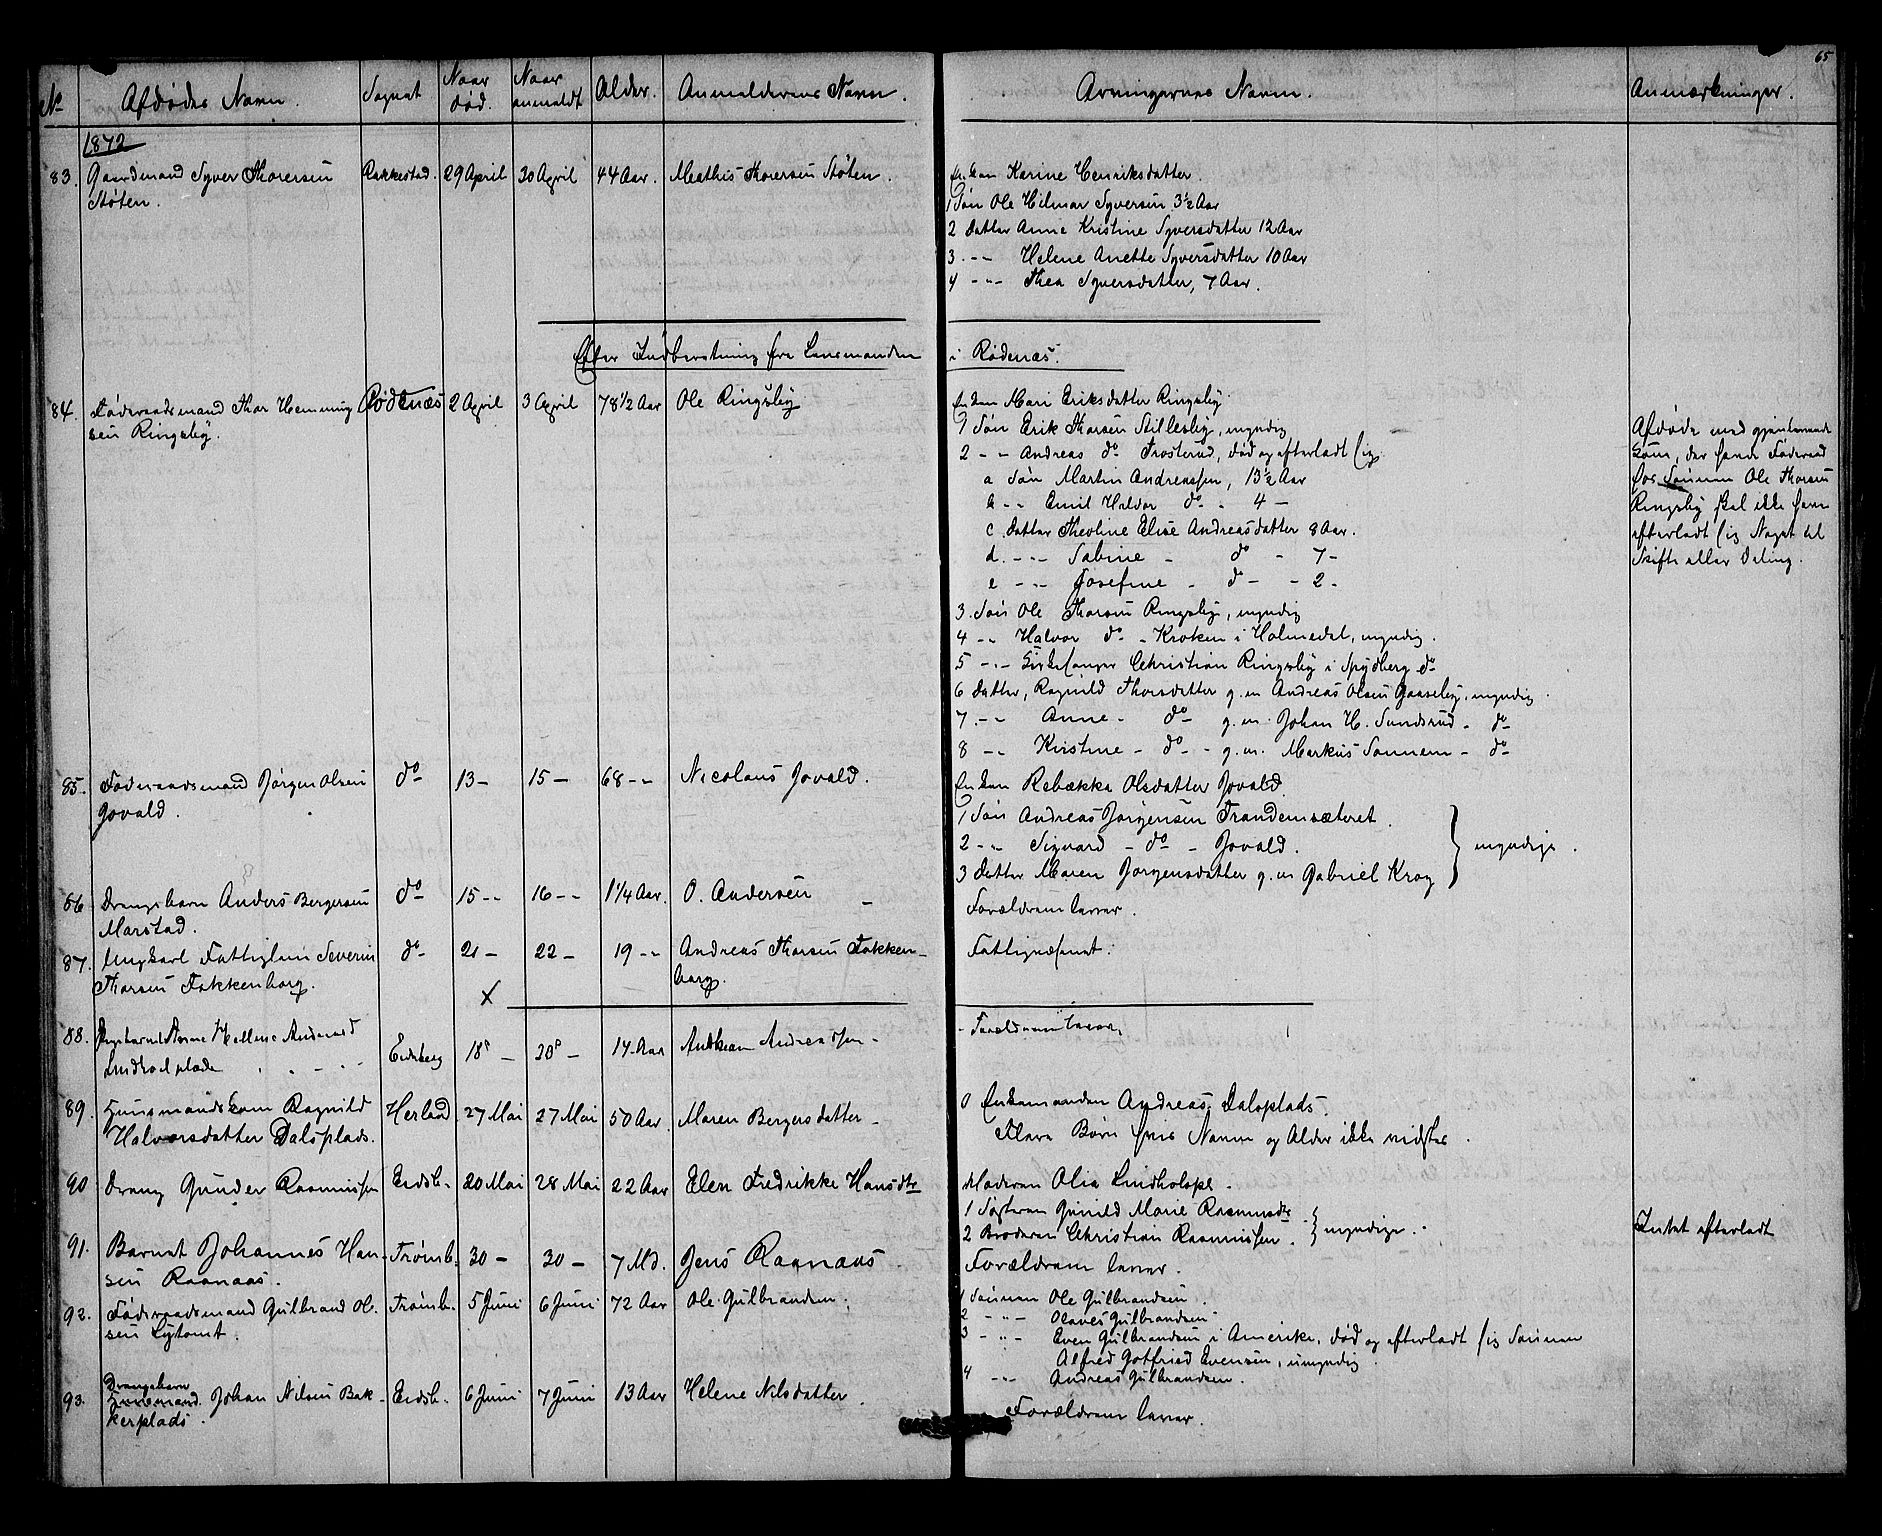 65
No Afdødes Navn. Sognet Naar død. Naar anmeldt Alder. Anmelderens Navn. Arvingernes Navne. Anmærkninger.
1872
83. Gaardmand Syver Thorersen Rakkestad. 29 April 30 April 44 Aar. Mathis Thorersen Støten. Enken Karine Henriksdatter.
Støten.
1 Søn Ole Hilmar Syversen 3½ Aar
2 Datter Anne Kristine Syversdatter 12 Aar
3 -"- Helene Anette Syversdatter 10 Aar
4 -"- Thea Syversdatter, 7 Aar.
Efter Indberetning fra Lensmanden i Rødenæs.
84. Føderaadsmand Thor Hemming Rødenæs 2 April 3 April 78 1/2 Aar Ole Ringsby Enken Mari Eriksdatter Ringsby
sen Ringsby.
1 Søn Erik Thorsen Stillesby, myndig
2 -"- Andreas do Trosterud, død og efterladt sig
a Søn Martin Andreassen, 13½ Aar
b -"- Emil Haldor do - 4 -
c. Datter Theoline Elise Andreasdatter 8 Aar.
d. -"- Sabine - do - 7 -
e -"- Josefine - do - - 2 -
3. Søn Ole Thorsen Ringsby, myndig
4 -"- Halvor do - Kroken i Holmedal, myndig.
5 -"- Kirkesanger Christian Ringsby i Spydberg do
6 Datter, Ragnild Thorsdatter g. m Andreas Olsen Gaaseby, myndig.
7. -"- Anne - do g. m. Johan H. Sundsrud - do
8 -"- Kirstine - do - g. m. Markus Sannem - do
Afdøde med gjenlevende
Kone, der havde Føderaad
hos Sønnen Ole Thorsen
Ringsby skal ikke have
efterladt sig Noget til
Skifte eller Deling.
85. Føderaadsmand Jørgen Olsen do 13 - 15 - 68 -"- Nicolaus Jovald. Enken Rebækka Olsdatter Jovald.
Jovald.
1 Søn Andreas Jørgensen Trandemsæteret.
2 -"- Sigvard - do - Jovald.
3 Datter Maren Jørgensdatter g. m Gabriel Krog
myndige.
86 Drengebarn Anders Bergersen do 15 -"- 16 -"- 1 1/4 Aar. O. Andersen Forældrene lever.
Marstad.
87. Ungkarl Fattiglem Severin do 21 - 22 - 19 -"- Andreas Thorsen Fokken- Fattigvæsenet.
Thorsen Fokkenborg. borg.
X
88. Pigebarnet Anne Helene Andersd Eidsberg 18de - 20de - 14 Aar Anthean Andreassen - Forældrene lever.
Lindholplads
89. Huusmandskone Ragnild Herland 27 Mai 27 Mai 50 Aar Maren Bergersdatter - 0 Enkemanden Andreas Dalsplads.
Halvorsdatter Dalsplads. Flere Børn hvis Navne og Alder ikke vidstes.
90 Dreng Gunder Rasmussen Eidsb. 20 Mai 28 Mai 22 Aar Elen Fredrikke Hansdtr Moderen Olia Lindholspl.
1 Søsteren Gunild Marie Rasmusdtr
2 Broderen Christian Rasmussen.
myndige.
Intet efterladt
91. Barnet Johannes Han- Trømb. 30 - 30 - 7 Md. Jens Raanaas Forældrene lever.
sen Raanaas.
92. Føderaadsmand Gulbrand Ol- Trømb. 5 Juni 6 Juni 72 Aar Ole Gulbrandsen. 1 Sønnen Ole Gulbrandsen
sen Lytomt.
2 -"- Olaves Gulbrandsen
3 -"- Even Gulbrandsen i Amerika, død og efterladt sig Sønnen
Alfred Gotfried Evensen, umyndig.
4 -"- Andreas Gulbrandsen.
Drengebarn
93. Huusmand Johan Nilsen Bak- Eidsb. 6 Juni 7 Juni 13 Aar Helene Nilsdatter. Forældrene lever.
kerplads.